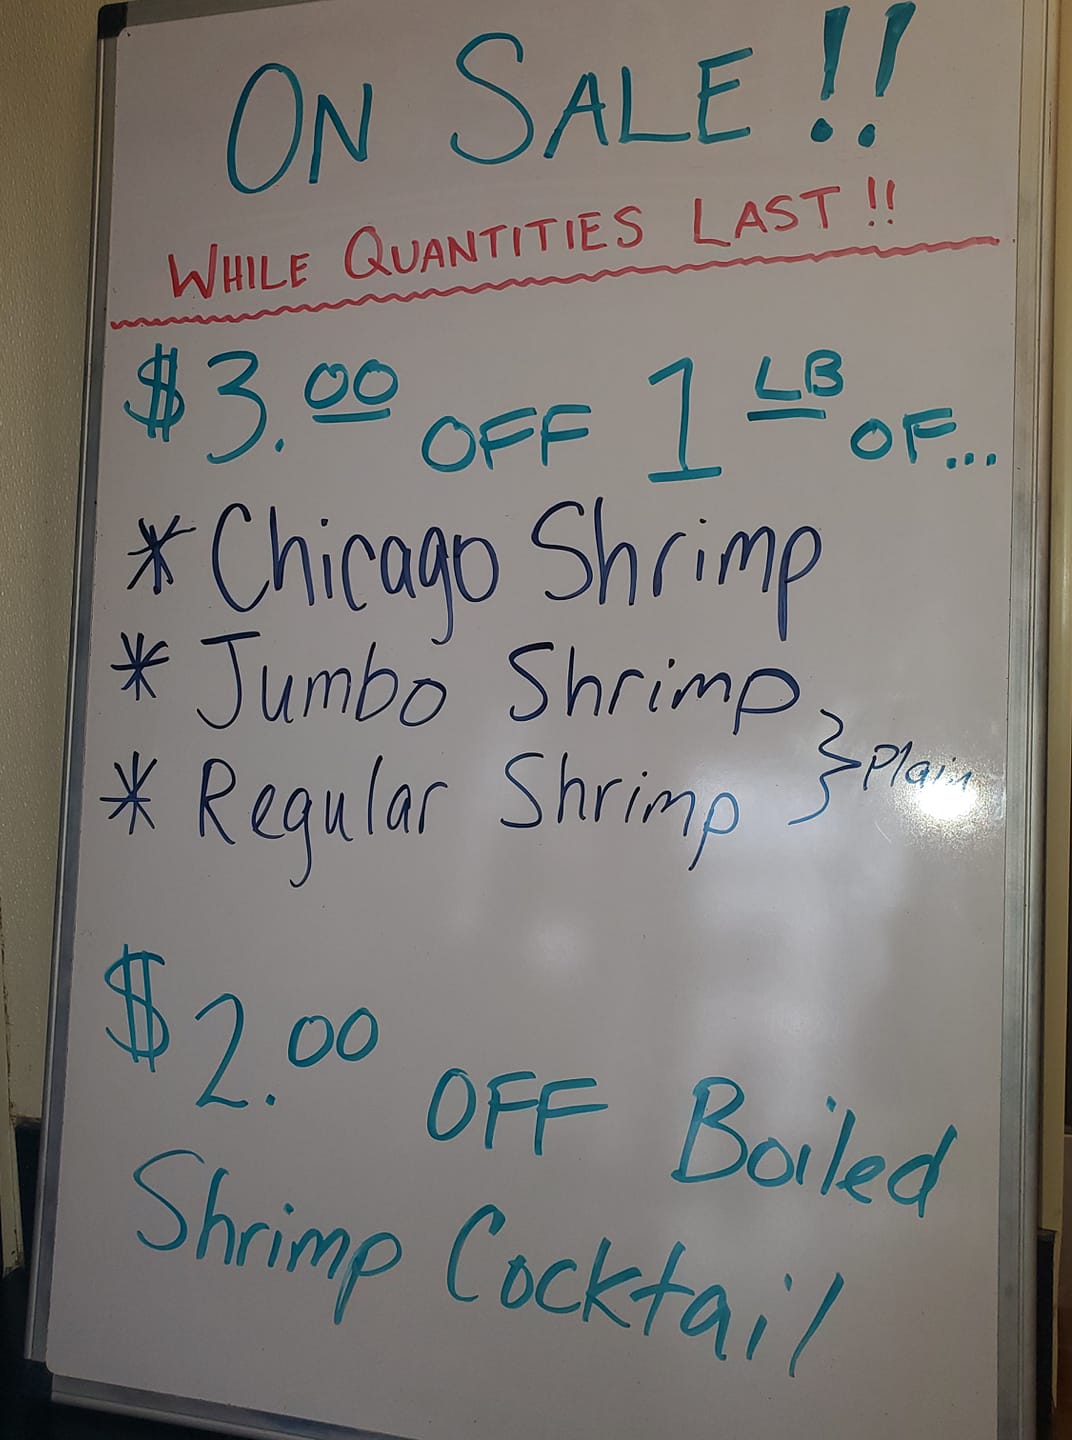 ON SALE!!
WHILE QUANTITIES LAST!!
$3.00 OFF 1 LB OF...
* Chicago Shrimp
* Jumbo Shrimp
* Regular Shrimp } Plain
$2.00 OFF Boiled
Shrimp Cocktail